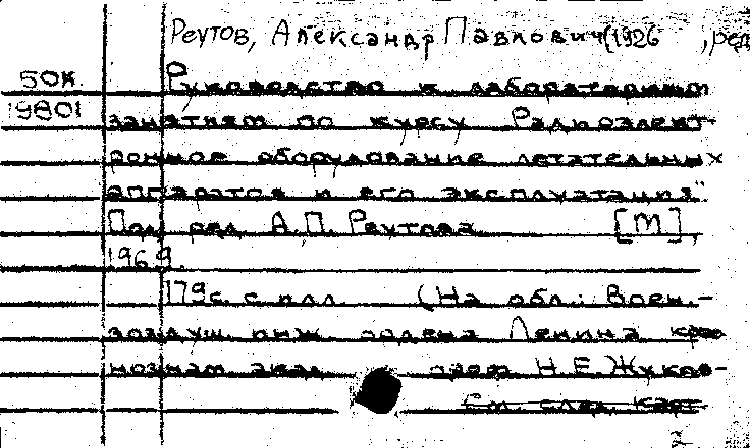 Реутов, Александр Павлович (1926 , ред
50к. Руководство к лабораторным
19801 занятиям по курсу "Радиоэлект-
ронное оборудование летательных
аппаратов и его эксплуатация"
Под ред. А.П. Реутова [М],
1969.
179с. с илл. (На обл.: Воен.-
воздуш. инж. ордена Ленина крас
нознам. акад. проф. Н.Е. Жуков-
См. след. карт